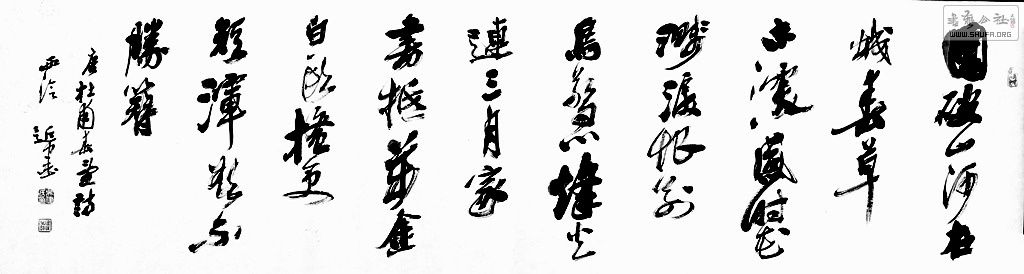 國破山河在
城春草
木深感時花
濺淚恨別
鳥驚心烽火
連三月家
書抵萬金
白頭搔更
短渾欲不
勝簪
唐杜甫春望詩
WWW.SHUFA.ORG